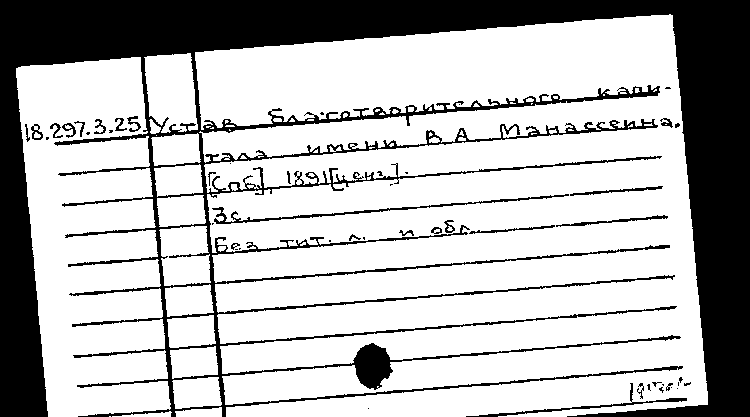 18.297.3.25. Устав благотворительного капи-
тала имени В А Манассеина.
[Спб], 1891 [ценз.].
3с.
Без тит. л. и обл.